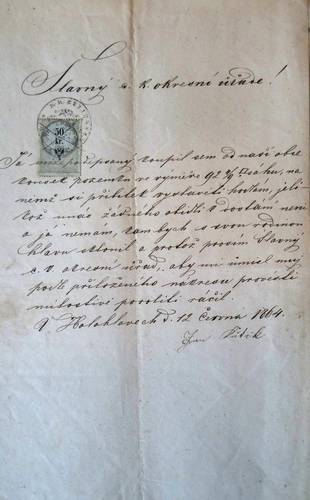 Slavný c. k. okresní úřade!
50
Já níže podepsaný koupil sem od naší obce
kousek pozemku ve výměře 92 sáhu, na
němž si příbitek vystavěti hodlám, jeli-
tož však žádného obidlí k dostání není
a já nemám, kam bych s svou rodinou
hlavu sklonil a protož prosím Slavný
c. k. okresní úřad, aby mi úmisl můj
podle přiloženého nákresu provésti
milostivě povoliti ráčil.
V Holohlavech d. 12 Června 1864.
Jan